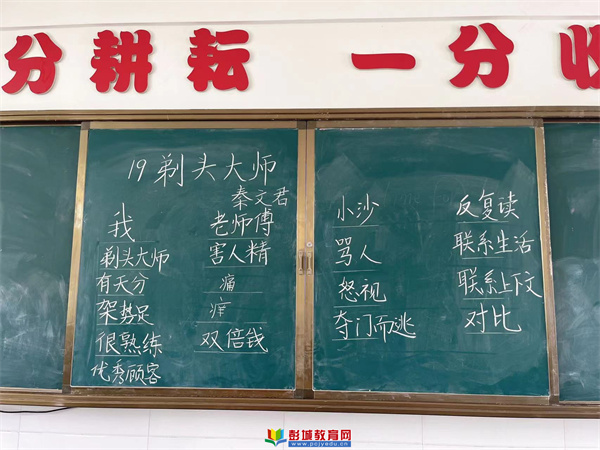 分耕耘 一分收
19剃头大师
秦文君
我
剃头大师
有天分
架势足
很熟练
优秀顾客
老师傅
害人精
痛
痒
双倍钱
小沙
骂人
怒视
夺门而逃
反复读
联系生活
联系上下文
对比
彭城教育网
www.pcjyedu.cn